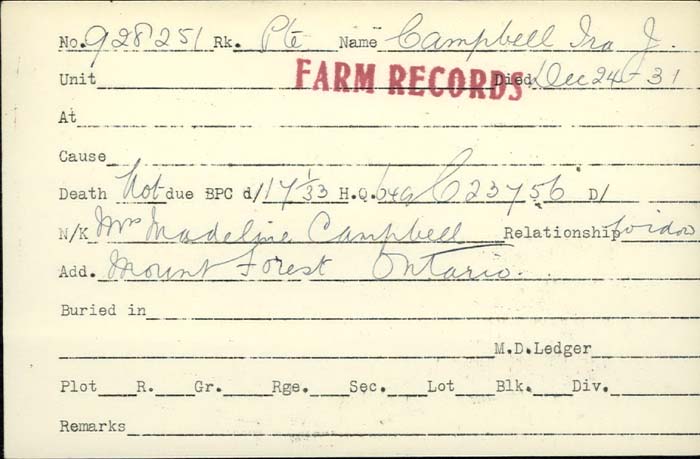 No. 928251 Rk. Pte Name Campbell Ira J.
Unit FARM RECORDS Died Dec 24-31
At
Cause
Death Not due BPC d/ 17/1/33 H.Q. 649 C 23756 D/
N/K Mrs Madeline Campbell Relationship widow
Add. Mount Forest Ontario.
Buried in
M.D.Ledger
Plot R. Gr. Rge. Sec. Lot Blk. Div.
Remarks